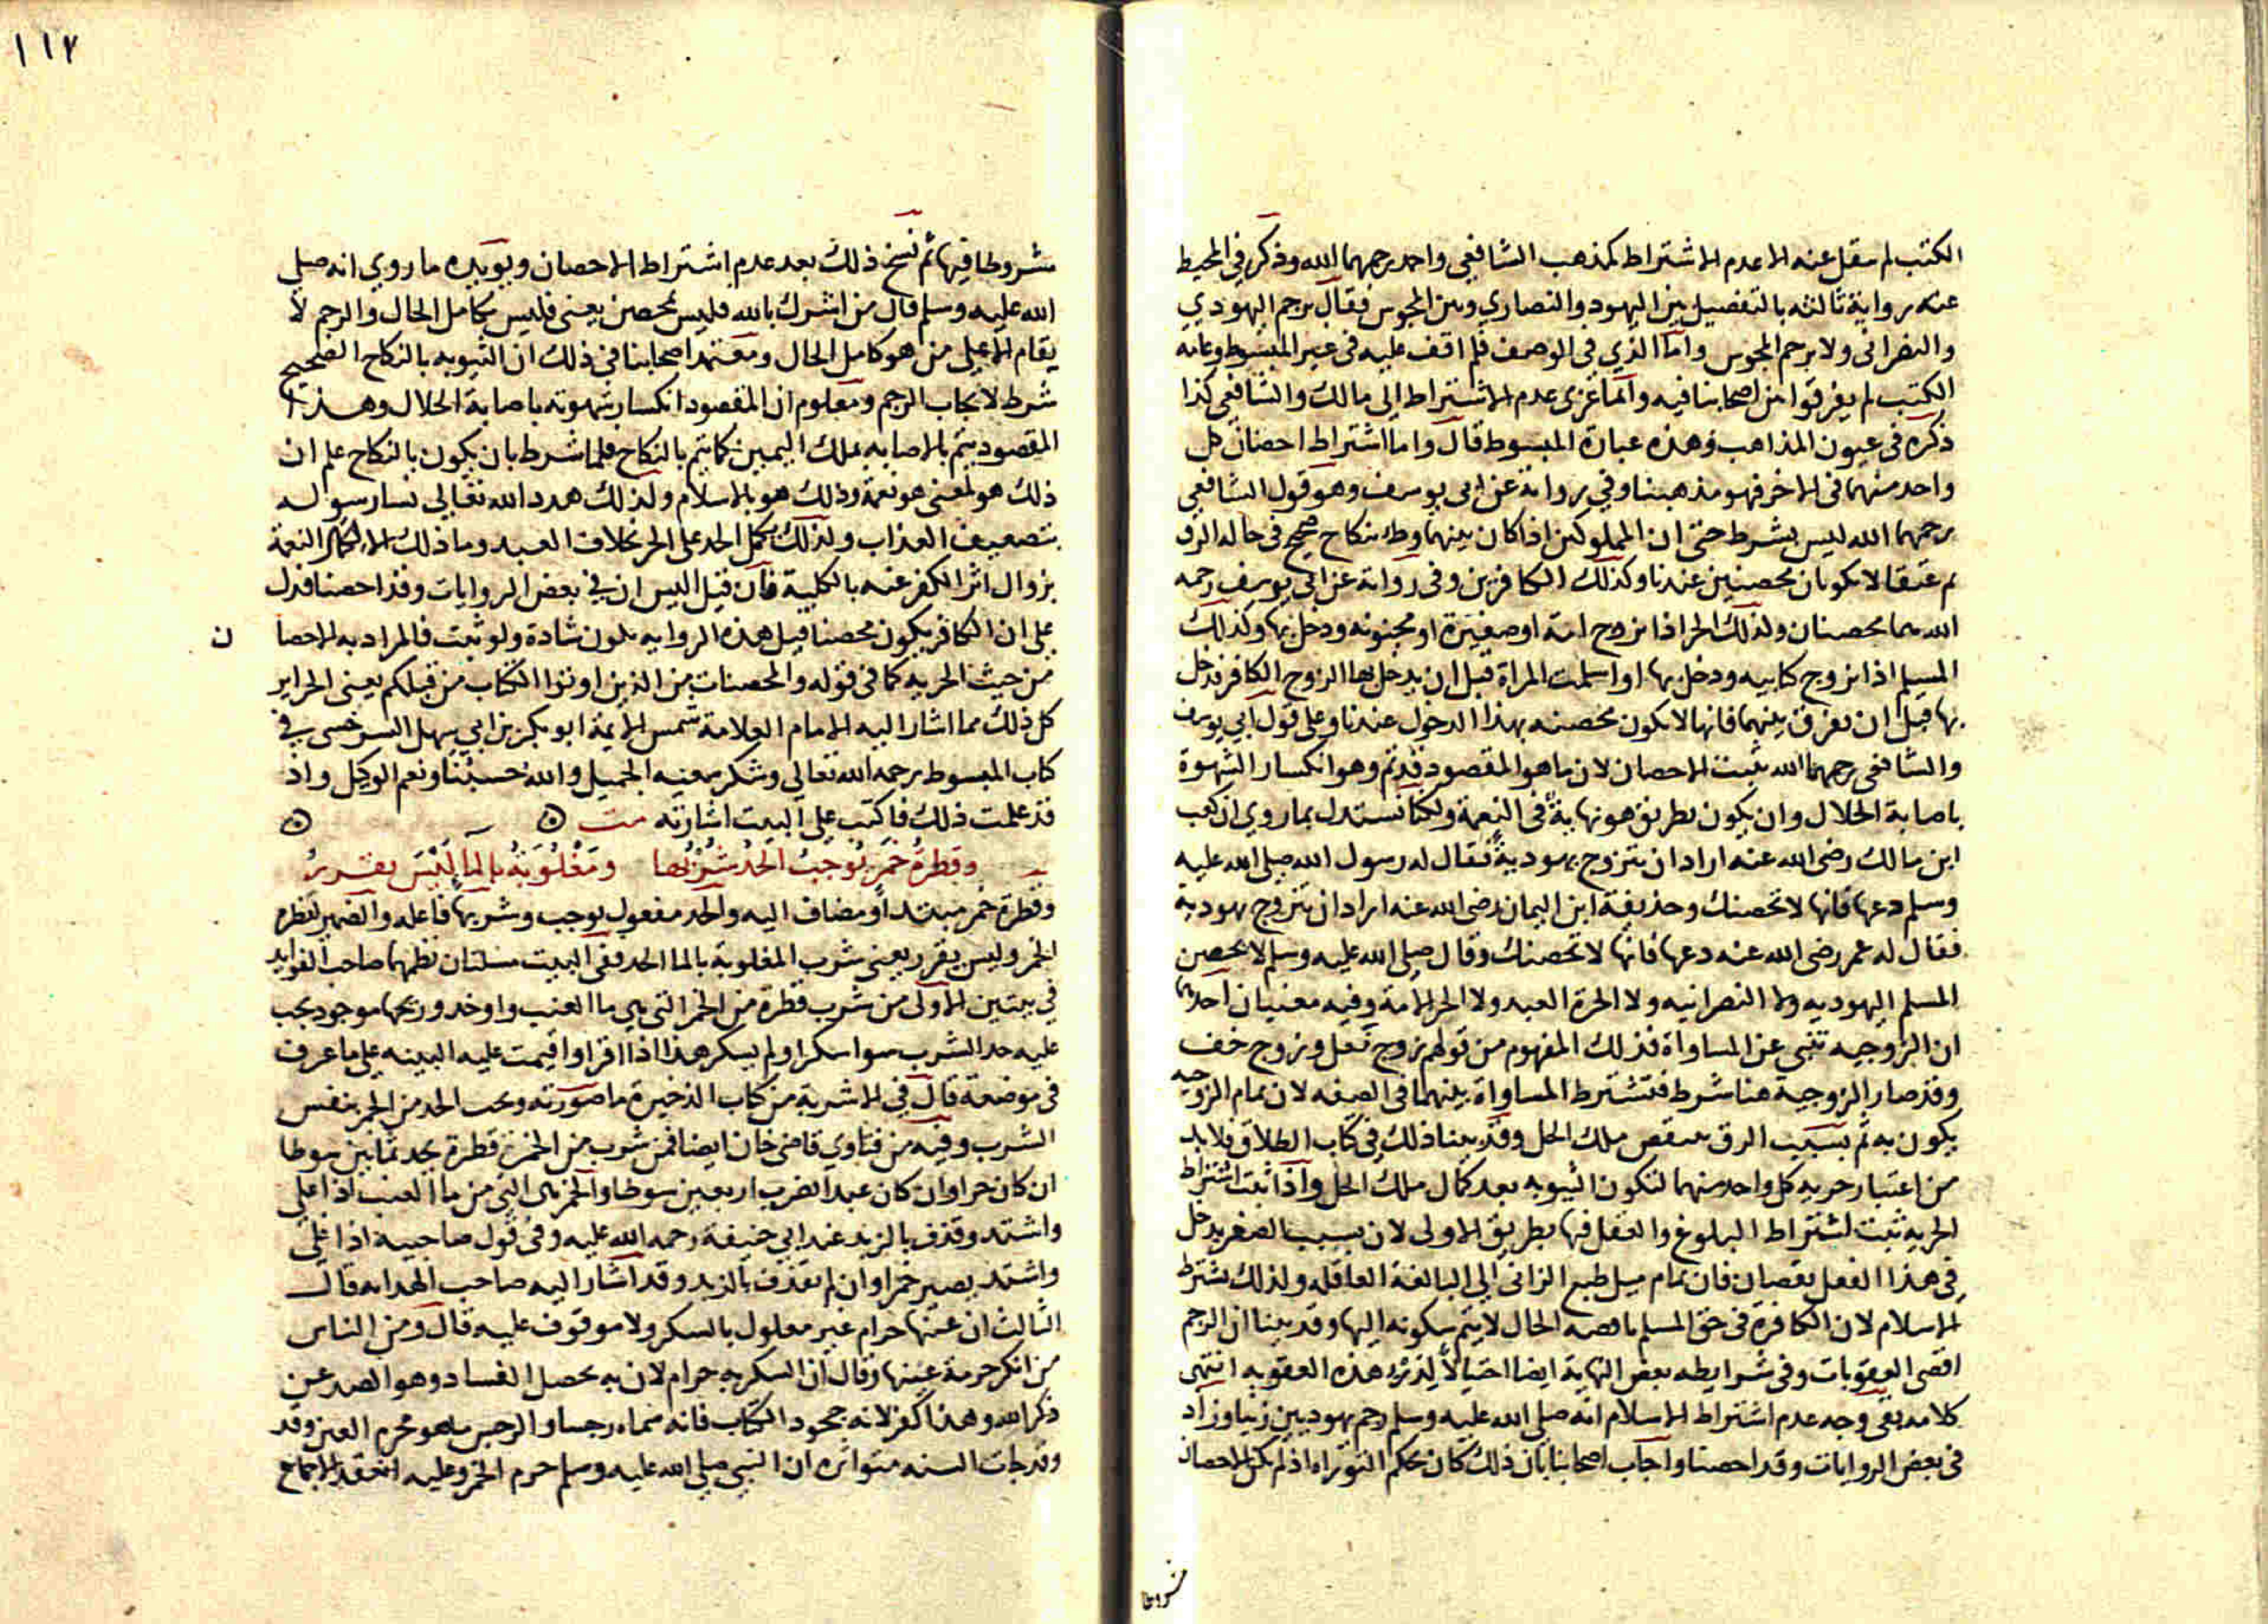 الكتب لم ينقل عنه الا عدم الاشتراط كمذهب الشافعي واحمد رحمهما الله وذكر في المحيط
عنه رواية ثالثه بالتفصيل بين اليهود والنصاري وبين المجوس فقال يرجم اليهودي
والنصراني ولا يرجم المجوس واما الذي في الوصف فلم اقف عليه في غير المبسوط وعامه
الكتب لم يفرقوا من اصحابنا فيه وانما عزى عدم الاشتراط الى مالك والشافعي كذا
ذكره في عيون المذاهب وهذه عبارة المبسوط قال واما اشتراط احصان كل
واحد منهما في الاخر فهو مذهبنا وفي رواية عن ابي يوسف وهو قول الشافعي
رحمهما الله ليس بشرط حتى ان المملوكين اذا كان بينهما وطء بنكاح صحيح في حالة الرق
ثم عتقا لا يكونان محصنين عندنا وكذلك الكافرين وفي رواية عن ابي يوسف رحمه
الله هما محصنان ولذلك الحر اذا تزوج امة او صغيرة او مجنونه ودخل بها وكذلك
المسلم اذا تزوج كتابيه ودخل بها او اسلمت المراة قبل ان يدخل بها الزوج الكافر فدخل
بها قبل ان يفرق بينهما فانها لا تكون محصنه بهذا الدخول عندنا وعلى قول ابي يوسف
والشافعي رحمهما الله يثبت الاحصان لان ما هو المقصود قد تم وهو انكسار الشهوة
باصابة الحلال وان يكون بطريق هو نهاية في النعمة ولكنا نستدل بما روي ان كعب
ابن مالك رضى الله عنه اراد ان يتزوج يهودية فقال له رسول الله صلى الله عليه
وسلم دعها فانها لا تحصنك وحذيفة ابن اليمان رضى الله عنه اراد ان يتزوج يهودية
فقال له عمر رضى الله عنه دعها فانها لا تحصنك وقال صلى الله عليه وسلم لا يحصن
المسلم اليهوديه ولا النصرانيه ولا الحرة العبد ولا الحر الامة وفيه معنيان احدهما
ان الزوجيه تنبي عن المساواة فذلك المفهوم من قولهم زوج نعل وزوج خف
وقد صار الزوجية هنا شرط فتشترط المساواة بينهما في الصفه لان تمام الزوجيه
يكون به ثم بسبب الرق ينتقص ملك الحل وقد بينا ذلك في كتاب الطلاق فلا بد
من اعتبار حريه كل واحد منهما لتكون الثيوبه بعد كمال ملك الحل واذا ثبت اشتراط
الحريه ثبت اشتراط البلوغ والعقل فيها بطريق الاولى لان بسبب الصغر يدخل
في هذا الفعل نقصان فان تمام ميل طبع الزاني الى البالغة العاقله ولذلك يشترط
الاسلام لان الكافرة في حق المسلم ناقصه الحال لا يتم سكونه اليها وقد بينا ان الرجم
اقصى العقوبات وفي شرايطه بعض النهاية ايضا احتيالا لدرء هذه العقوبه انتهى
كلامه بقي وجه عدم اشتراط الاسلام انه صلى الله عليه وسلم رجم يهوديين زنيا وزاد
في بعض الروايات وقد احصنا واجاب اصحابنا بان ذلك كان بحكم التوراه اذ لم يكن الاحصان
مشروطا
١١٧
مشروطا فيها ثم نسخ ذلك بعد عدم اشتراط الاحصان ويويده ما روي انه صلى
الله عليه وسلم قال من اشرك بالله فليس بمحصن يعني فليس بكامل الحال والرجم لا
يقام الا على من هو كامل الحال ومعتمد اصحابنا في ذلك ان الثيوبه بالنكاح الصحيح
شرط لايجاب الرجم ومعلوم ان المقصود انكسار شهوته باصابة الحلال وهذا
المقصود يتم بالاصابه بملك اليمين كما يتم بالنكاح فلما شرط بان يكون بالنكاح علم ان
ذلك هو لمعنى هو نعمة وذلك هو بالاسلام ولذلك هدد الله تعالى نسا رسوله
بتضعيف العذاب ولذلك يكمل الحد على الحر بخلاف العبد وما ذلك الا لتكامل النعمة
بزوال اثر الكفر عنه بالكلية فان قيل اليس ان في بعض الروايات وقد احصنا فدل
على ان الكافر يكون محصنا قيل هذه الروايه تكون شادة ولو ثبت فالمراد به الاحصا
ن
من حيث الحريه كما في قوله والمحصنات من الذين اوتوا الكتاب من قبلكم يعني الحراير
كل ذلك مما اشار اليه الامام العلامة شمس الايمة ابو بكر بن ابي سهل السرخسي في
كتاب المبسوط رحمه الله تعالى وشكر سعيه الجميل والله حسبنا ونعم الوكيل واذ
قد علمت ذلك فاكتب على البيت اشارته مت
وقطرة خمر توجب الحد شربها ومغلوبة بالما ليس يقرر
وقطرة خمر مبتدا ومضاف اليه والحد مفعول يوجب وشربها فاعله والضمير لقطرة
الخمر وليس يقرر يعني شرب المغلوبة بالما الحد وفي البيت مسئلتان نظمهما صاحب الفوايد
في بيتين الاولى من شرب قطرة من الخمر التي هي ما العنب واوخد وريحها موجود يجب
عليه حد الشرب سوا سكر او لم يسكر هذا اذا اقر او اقيمت عليه البينه على ما عرف
في موضعة قال في الاشربة من كتاب الذخيرة ما صورته ويجب الحد من الخمر بنفس
الشرب وفيه من فتاوي قاضي خان ايضا فمن شرب من الخمر قطرة يحد ثمانين سوطا
ان كان حرا وان كان عبدا ضرب اربعين سوطا والخمر هي التي من ما العنب اذا غلى
واشتد وقذف بالزبد عند ابي حنيفة رحمه الله عليه وفي قول صاحبيه اذا غلى
واشتد يصير خمرا وان لم يقذف بالزبد وقد اشار اليه صاحب الهدايه قال
الثالث ان عينها حرام غير معلول بالسكر ولا موقوف عليه قال ومن الناس
من انكر حرمة عينها وقال ان السكر به حرام لان به يحصل الفساد وهو الصد عن
ذكر الله وهذا كفر لانه جحود الكتاب فانه سماه رجسا والرجس ما هو محرم العين وقد
وقد جات السنه متواتره ان النبي صلى الله عليه وسلم حرم الخمر وعليه انعقد الاجماع